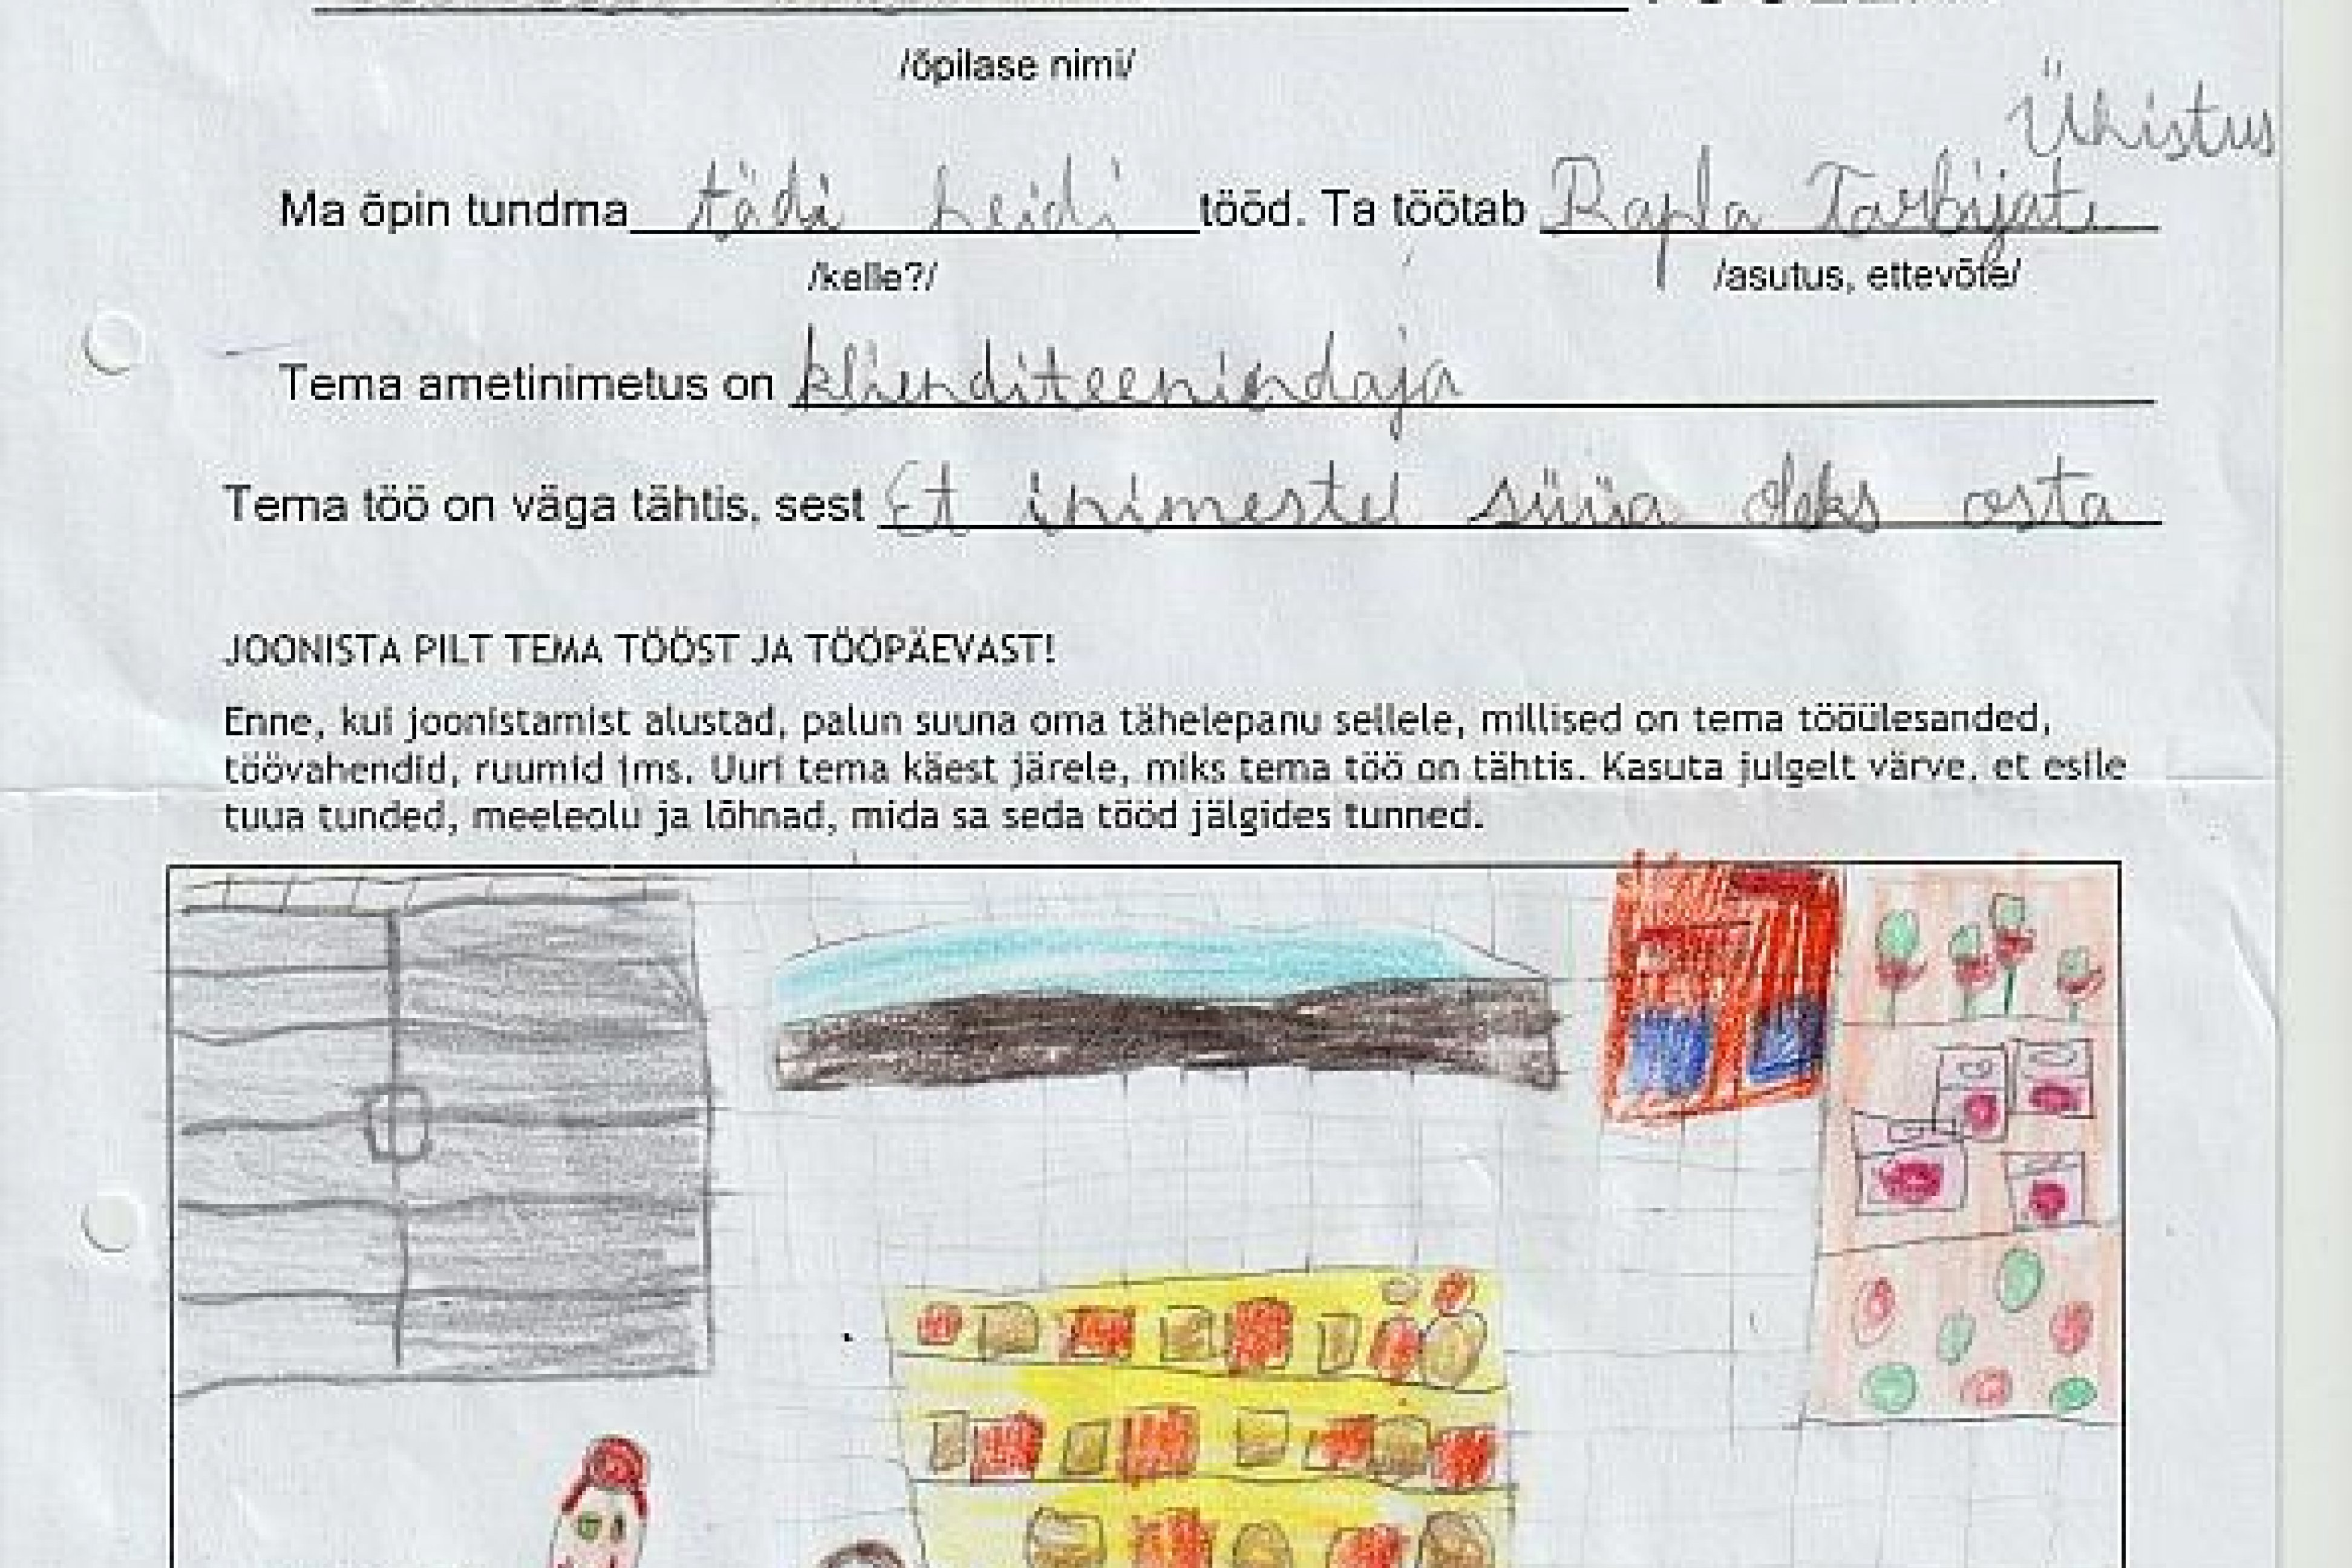 /õpilase nimi/
Ühistus
Ma õpin tundma tädi Leidi tööd. Ta töötab Rapla Tarbijate
/kelle?/ /asutus, ettevõte/
Tema ametinimetus on klienditeenindaja
Tema töö on väga tähtis, sest Et inimestel süüa oleks osta
JOONISTA PILT TEMA TÖÖST JA TÖÖPÄEVAST!
Enne, kui joonistamist alustad, palun suuna oma tähelepanu sellele, millised on tema tööülesanded,
töövahendid, ruumid jms. Uuri tema käest järele, miks tema töö on tähtis. Kasuta julgelt värve, et esile
tuua tunded, meeleolu ja lõhnad, mida sa seda tööd jälgides tunned.